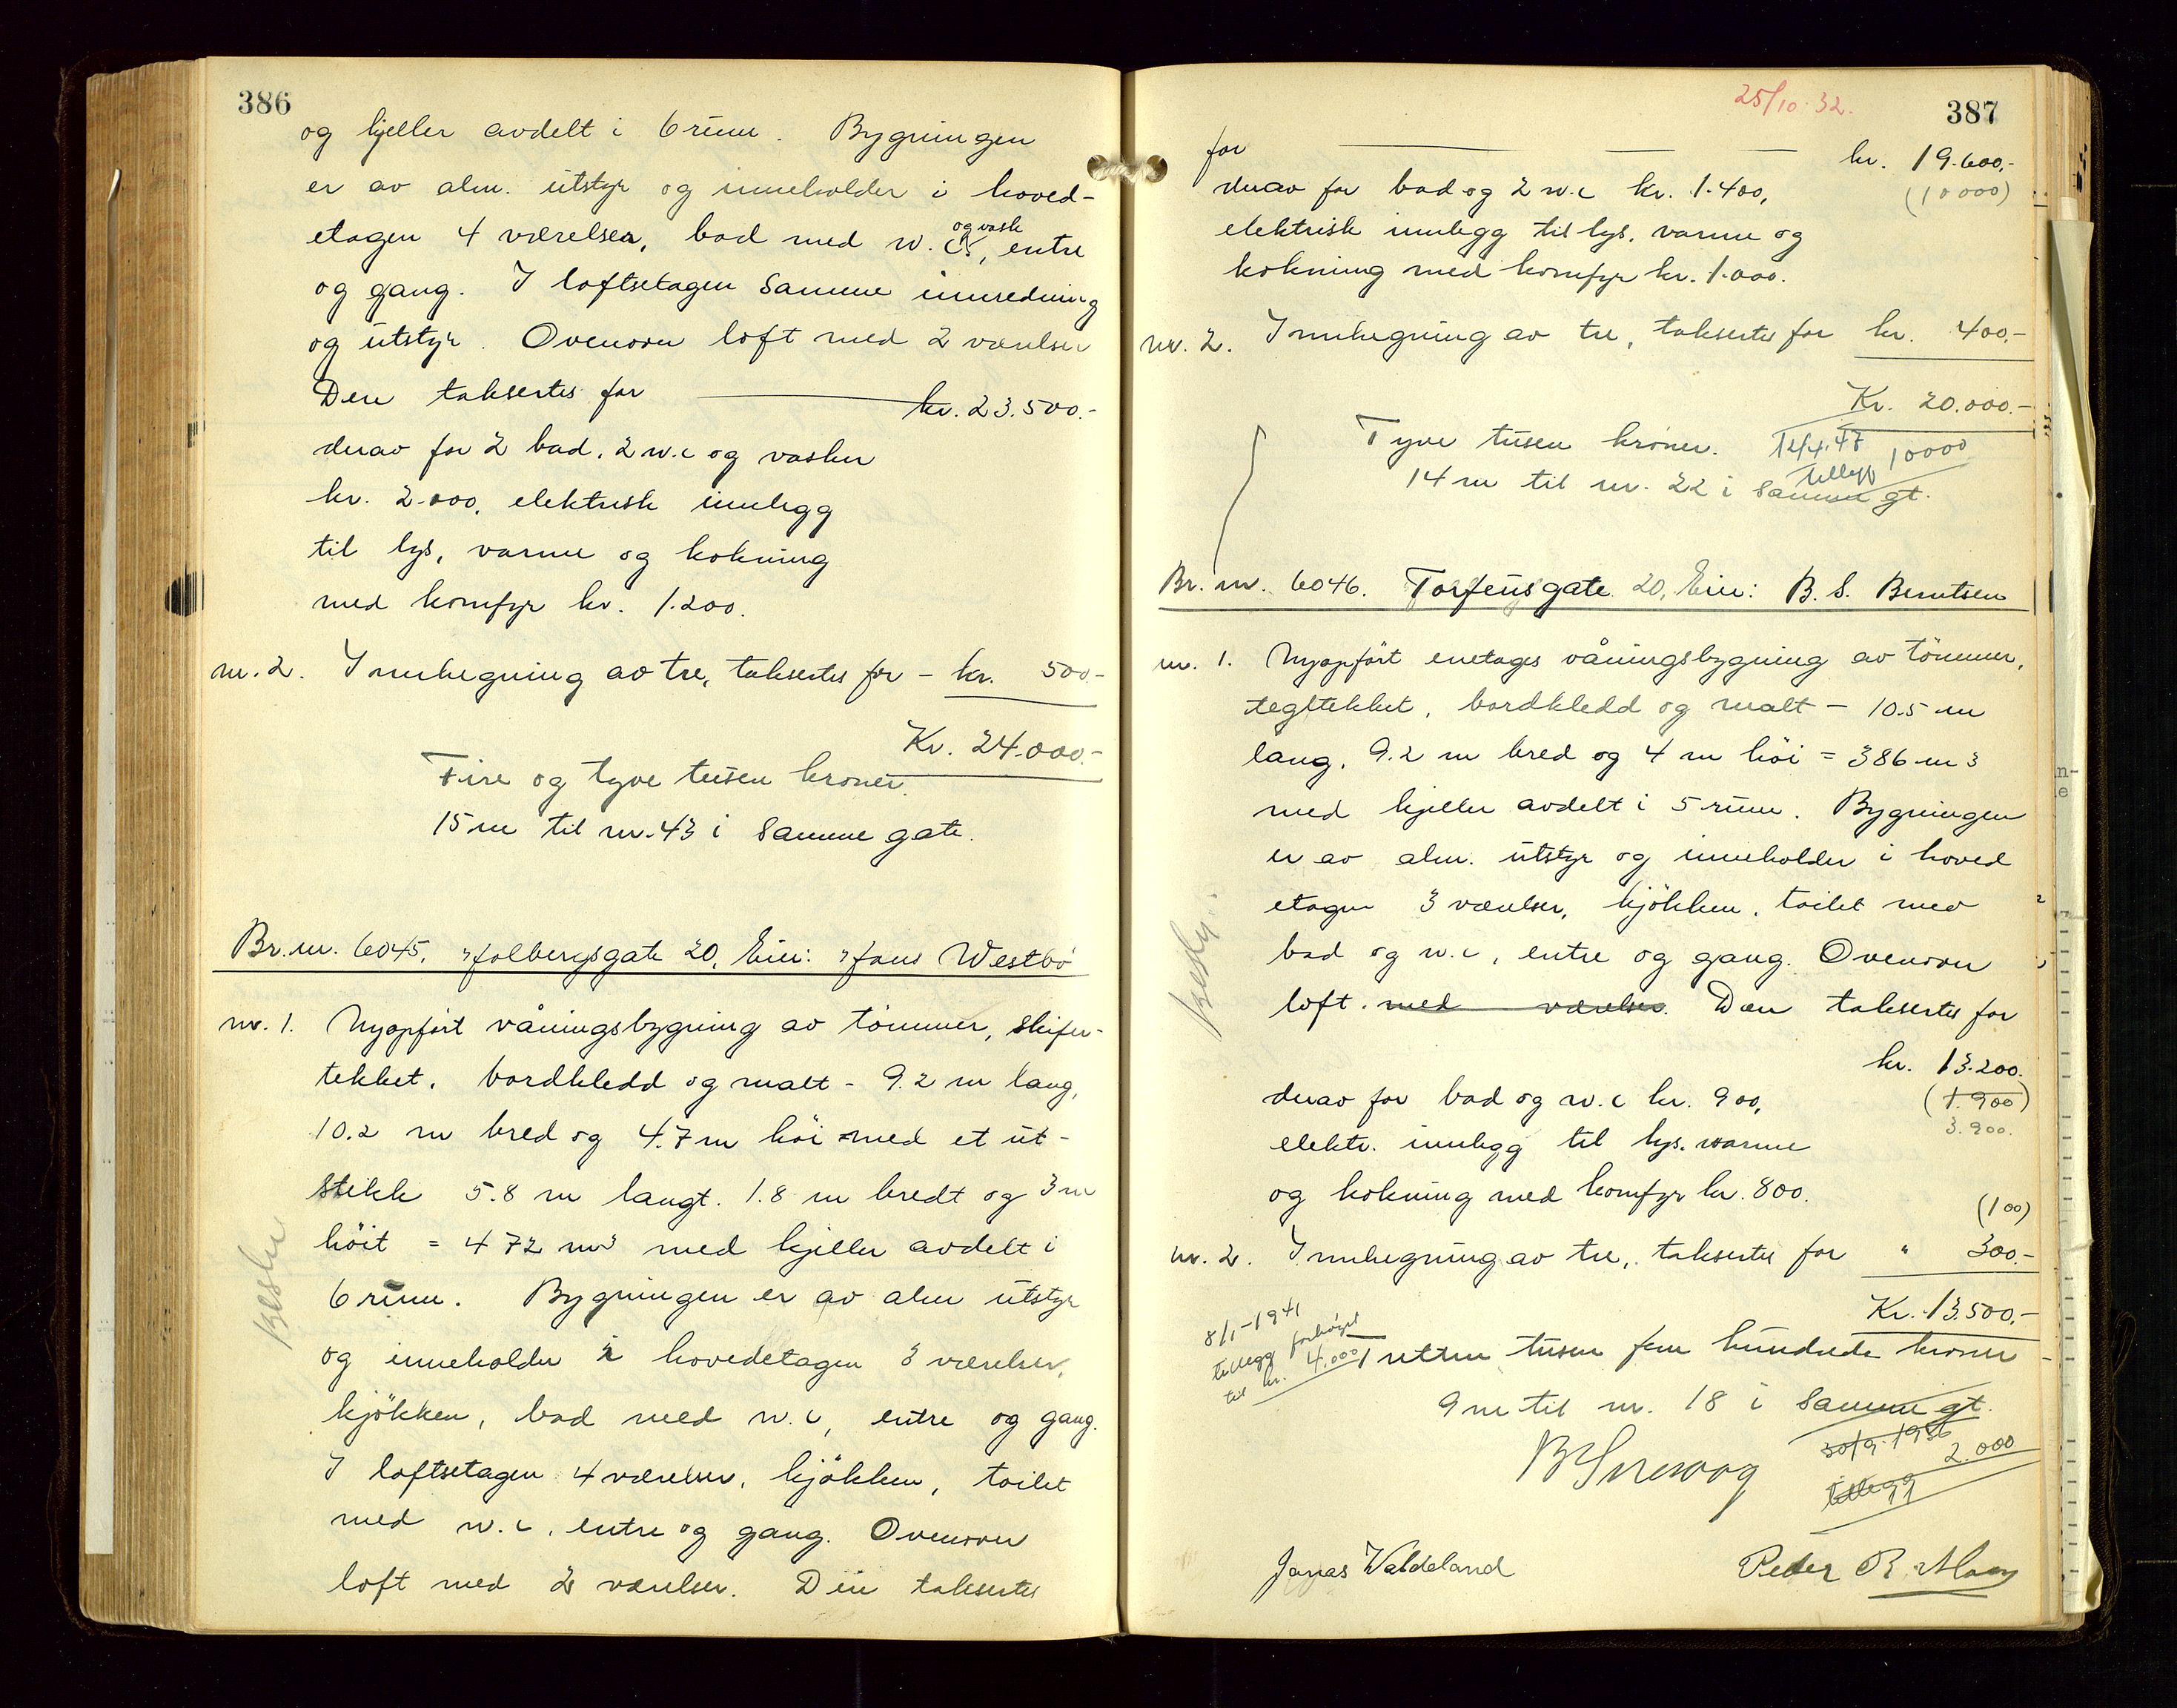 386
og kjeller avdelt i 6 rum. Bygningen
er av alm. utstyr og inneholder i hoved-
etagen 4 værelser, bad med w.c. og vask, entre
og gang. I loftsetagen samme innredning
og utstyr. Ovenover loft med 2 værelser
Den takseres for kr. 23.500.-
derav for 2 bad, 2 w.c og vasker
kr. 2.000, elektrisk innlegg
til lys, varme og kokning
med komfyr kr. 1.200.
nr. 2. Innhegning av tre, taksertes for - kr. 500.-
Kr. 24.000.-
Fire og tyve tusen kroner.
15 m til nr. 43 i samme gate.
Br. nr. 6045. Holbergsgate 20, Eier: Hans Westbö
nr. 1. Nyopført våningsbygning av tömmer, skifer-
tekket, bordkledd og malt - 9.2 m lang,
10.2 m bred og 4.7 m höi med et ut-
stikk 5.8 m langt. 1.8 m bredt og 3 m
höit = 472 m3 med kjeller avdelt i
6 rum. Bygningen er av alm utstyr
og inneholder i hovedetagen 3 værelser,
kjökken, bad med w.c, entre og gang.
I loftsetagen 4 værelser, kjökken, toilet
med w.c, entre og gang. Ovenover
loft med 2 værelser. Den taksertes
25/10.32.
387
for kr. 19.600,-
derav for bad og 2 w.c kr. 1.400, (10000)
elektrisk innlegg til lys, varme og
kokning med komfyr kr. 1.000.
nr. 2. Innhegning av tre, taksertes for kr. 400,-
Kr. 20.000.-
Tyve tusen kroner. 12/4.47 10000
tillegg
14 m til nr. 22 i samme gt.
Br. nr. 6046. Torfeusgate 20, Eier: B. S. Berntsen
nr. 1. Nyopfört enetages våningsbygning av tömmer,
tegltekket, bordkledd og malt - 10.5 m
lang, 9.2 m bred og 4 m höi = 386 m3
med kjeller avdelt i 5 rum. Bygningen
er av alm. utstyr og inneholder i hoved
etagen 3 værelser, kjökken, toilet med
bad og w.c, entre og gang. Ovenover
loft. med værelser. Den taksertes for
kr. 13.200.
derav for bad og w.c kr. 900, (1.900)
3.900.
elektr. innlegg til lys, varme
og kokning med komfyr kr. 800.
(100)
nr. 2. Innhegning av tre, taksertes for " 300.-
Kr. 13.500,-
8/1-1941
tillegg forhöyet
til kr. 4.000
Tretten tusen fem hundrede kroner
9 m til nr. 18 i samme gt.
30/9.1936
2.000
tillegg
Jonas Waldeland
Peder R. Moen